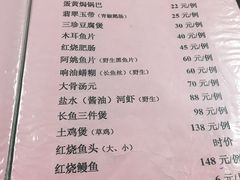 蛋黄焗锅巴 22 元/例
翡翠玉带(青椒鹅肠) 25 元/例
三珍豆腐煲 30 元/例
木耳鱼片 38 元/例
红烧肥肠 45 元/例
阿姚鱼片(野生黑鱼片) 60 元/例
响油鳝糊(长鱼丝)(野生) 60 元/例
大骨汤元 60 元/例
盐水(酱油)河虾(野生) 88 元/例
长鱼三件煲 98 元/例
土鸡煲(草鸡) 138 元/例
红烧鱼头(大、小) 时价
红烧鳗鱼 148 元/例
6 元/